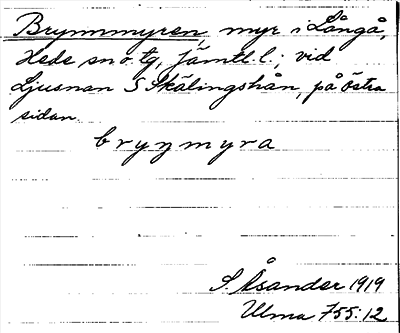 Brynnmyren myr i Långå,
Hede sn o. tg, Jämtl. l.; vid
Ljusnan S Skälingshån, på östra
sidan.
brynmyra
S. Åsander 1919
Ulma 755:12